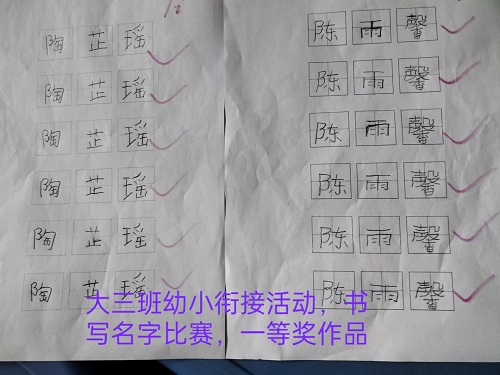 陶芷瑶
陶芷瑶
陶芷瑶
陶芷瑶
陶芷瑶
陶芷瑶
陈雨馨
陈雨馨
陈雨馨
陈雨馨
陈雨馨
陈雨馨
大三班幼小衔接活动，书
写名字比赛，一等奖作品